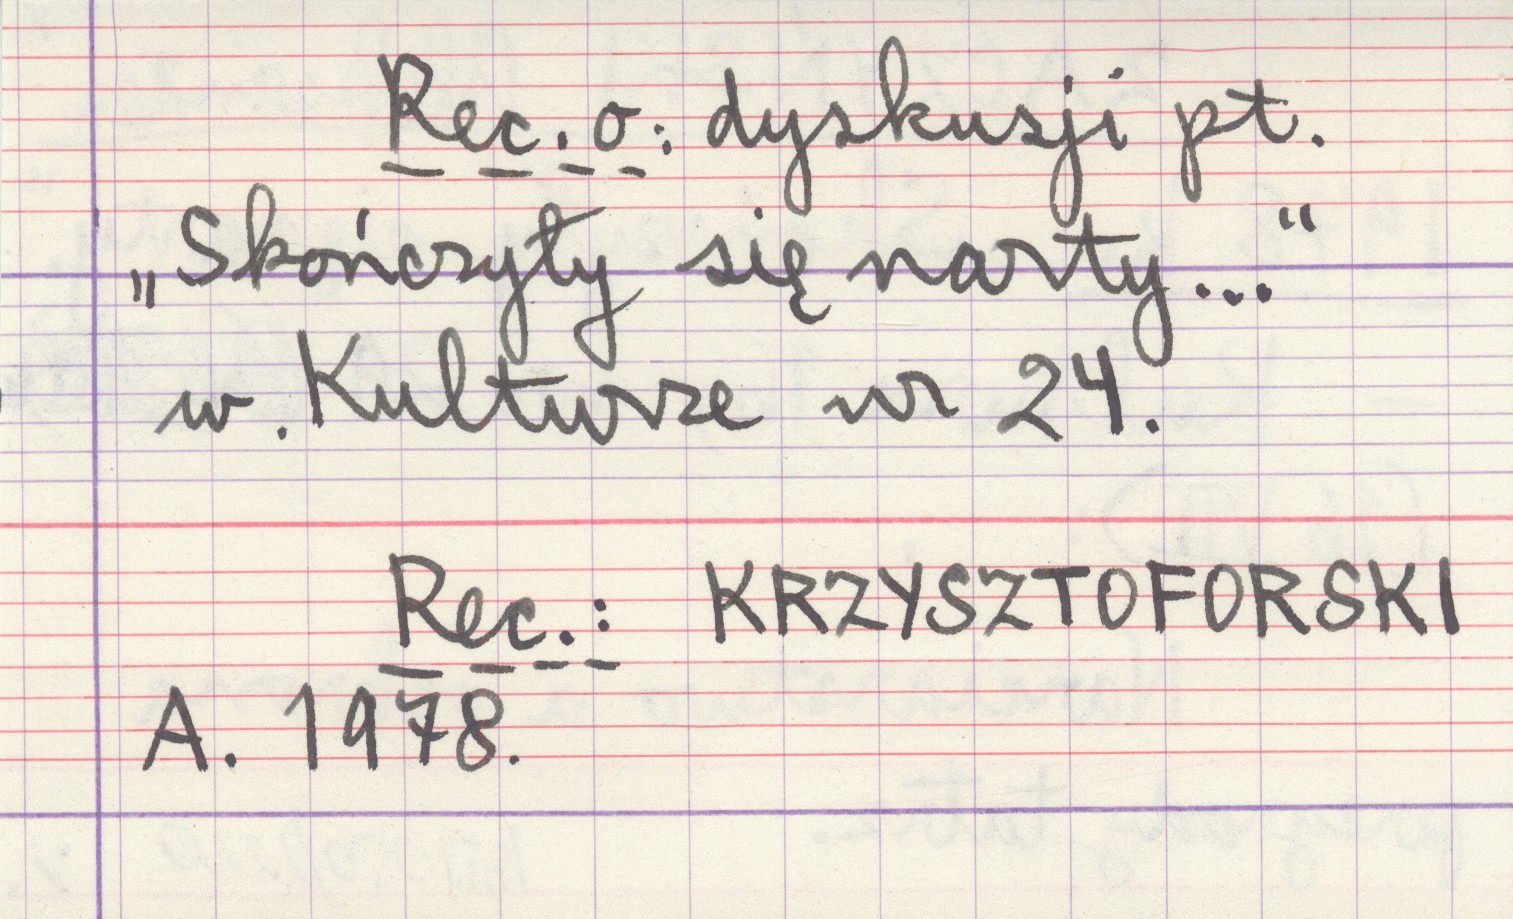 Rec. o: dyskusji pt.
„Skończyły się narty..."
w. Kulturze nr 24.
Rec.: KRZYSZTOFORSKI
A. 1978.